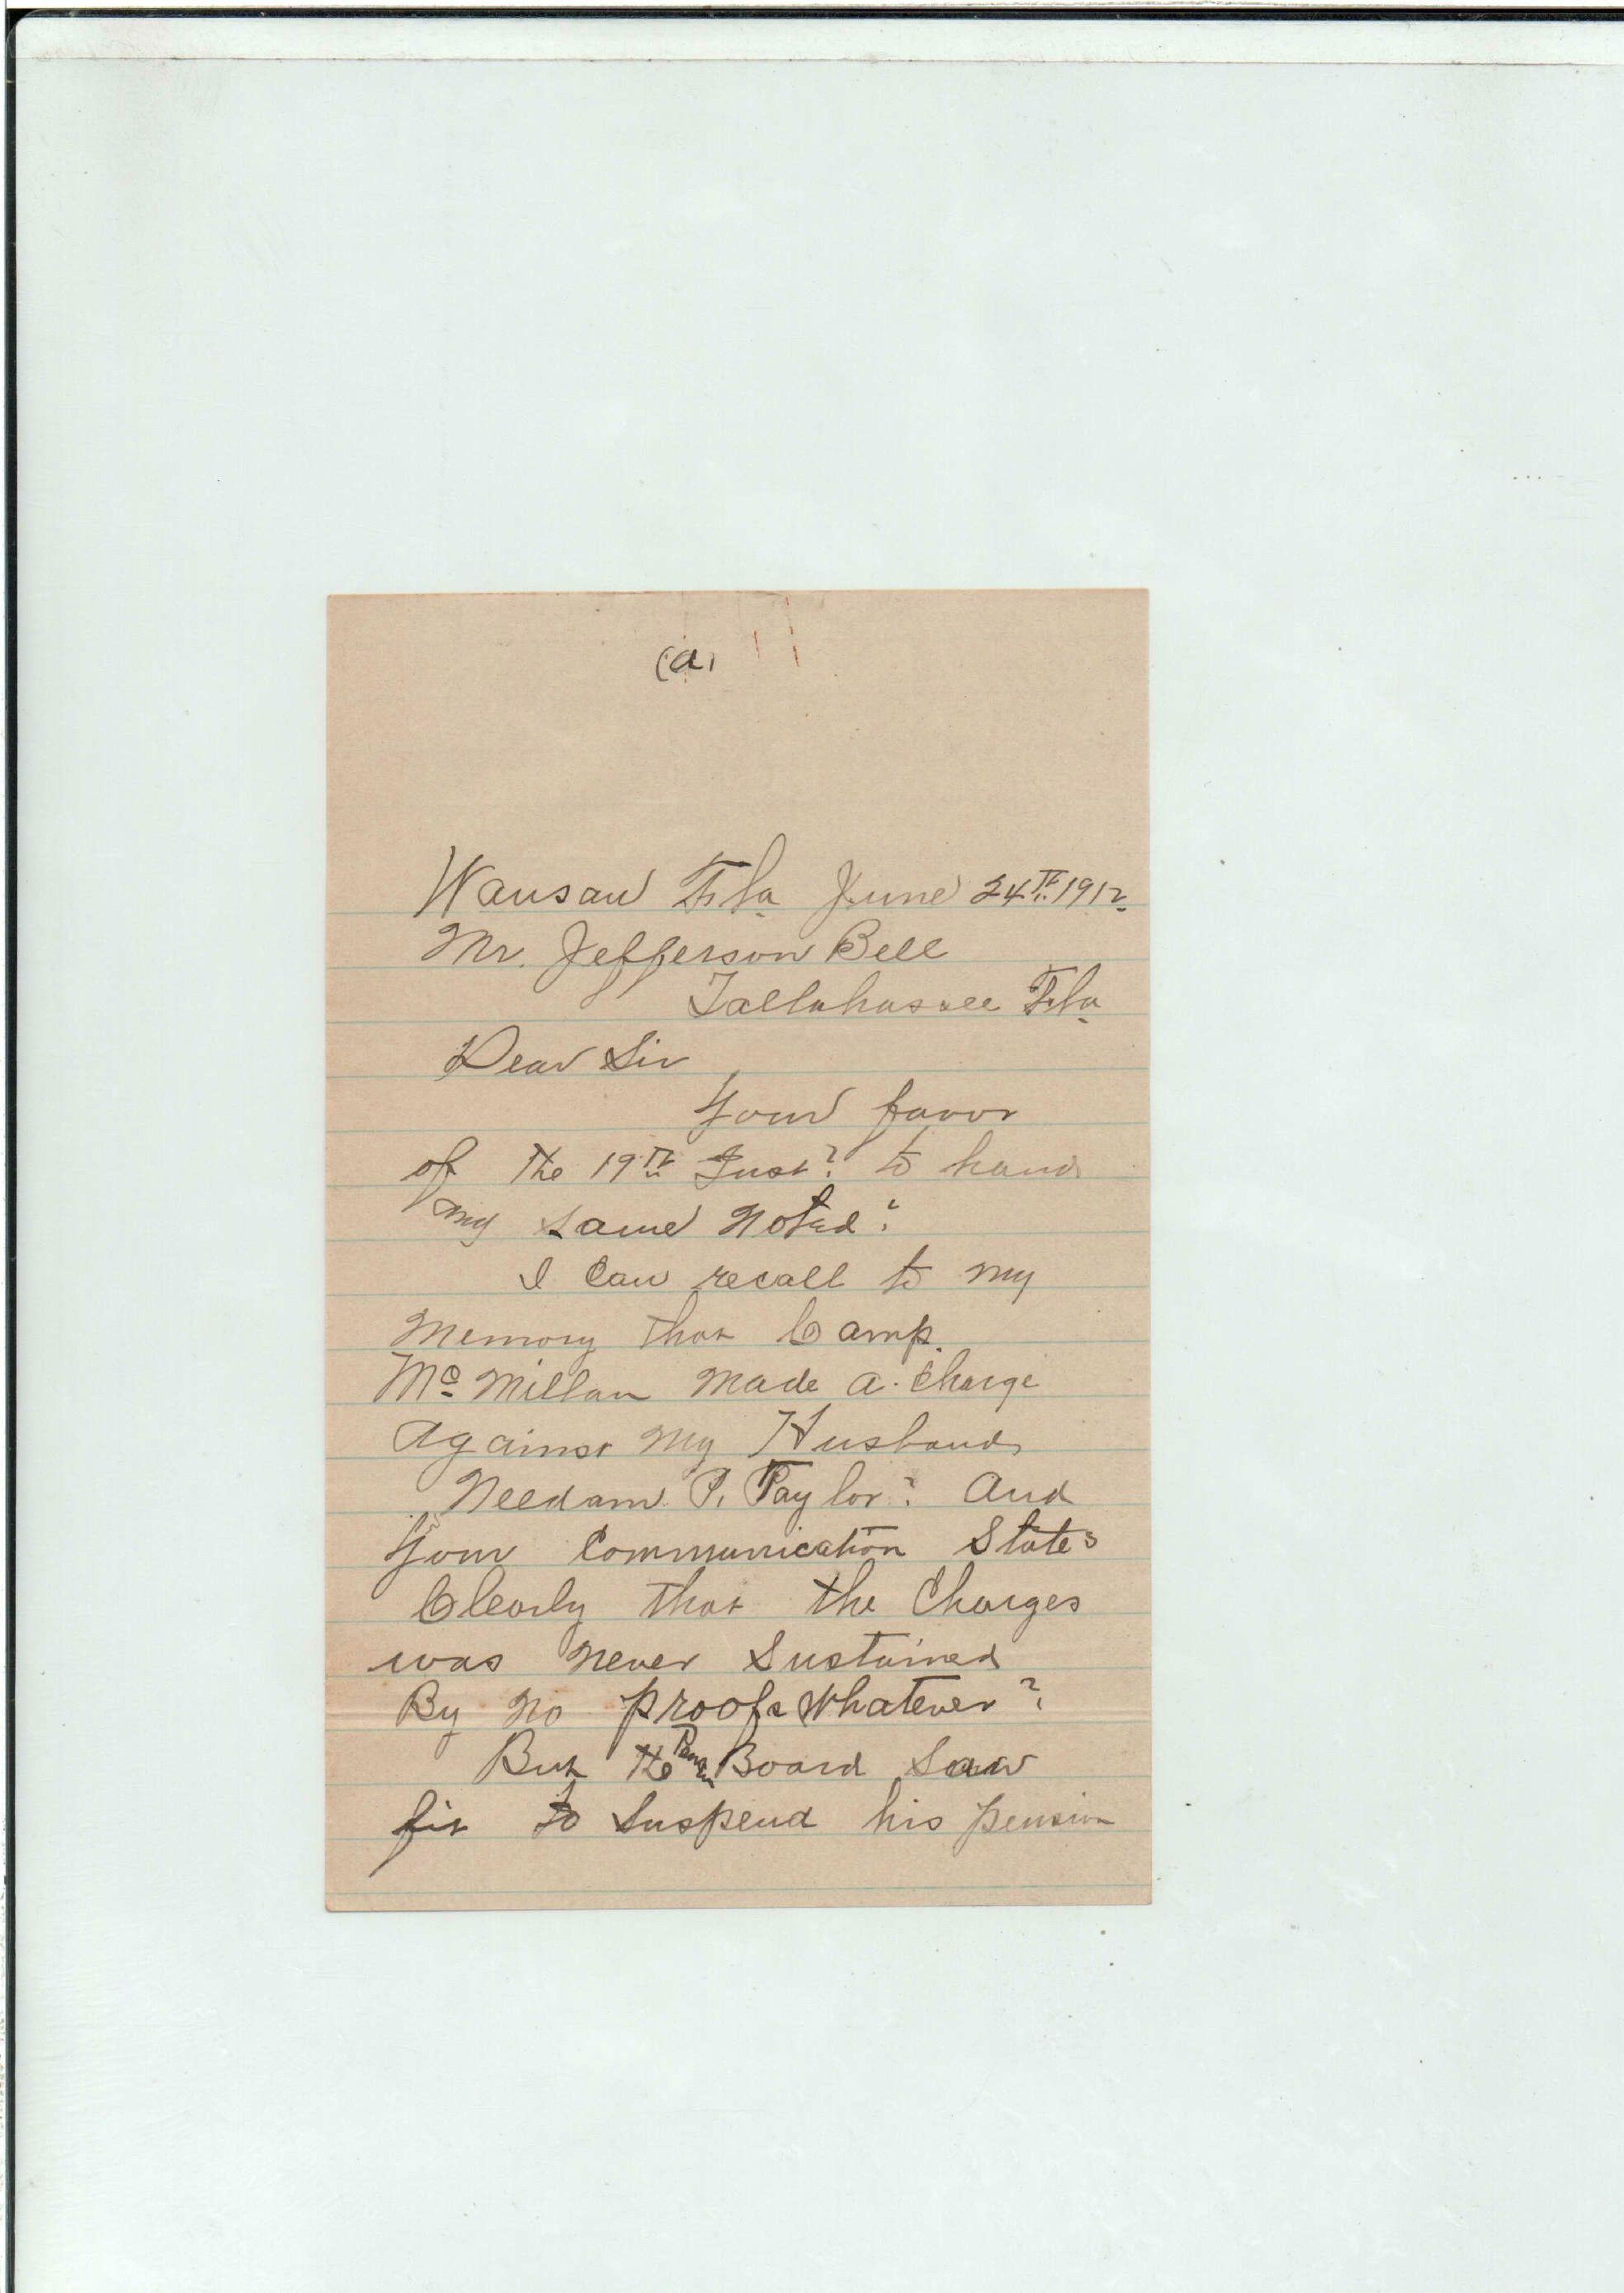 (a)
Wausau Fla June 24th 1912
Mr. Jefferson Bell
Tallahassee Fla
Dear Sir
Your favor
of the 19th Inst? to hand
same Noted?
I Can recall to my
Memory that Camp
Mc Millan Made a Charge
Against My Husband
Needam P. Taylor? And
Your Communication States
Clearly that the Charges
was Never Sustained
By No proofs Whatever?
But the Board Saw
fit to Suspend his pension